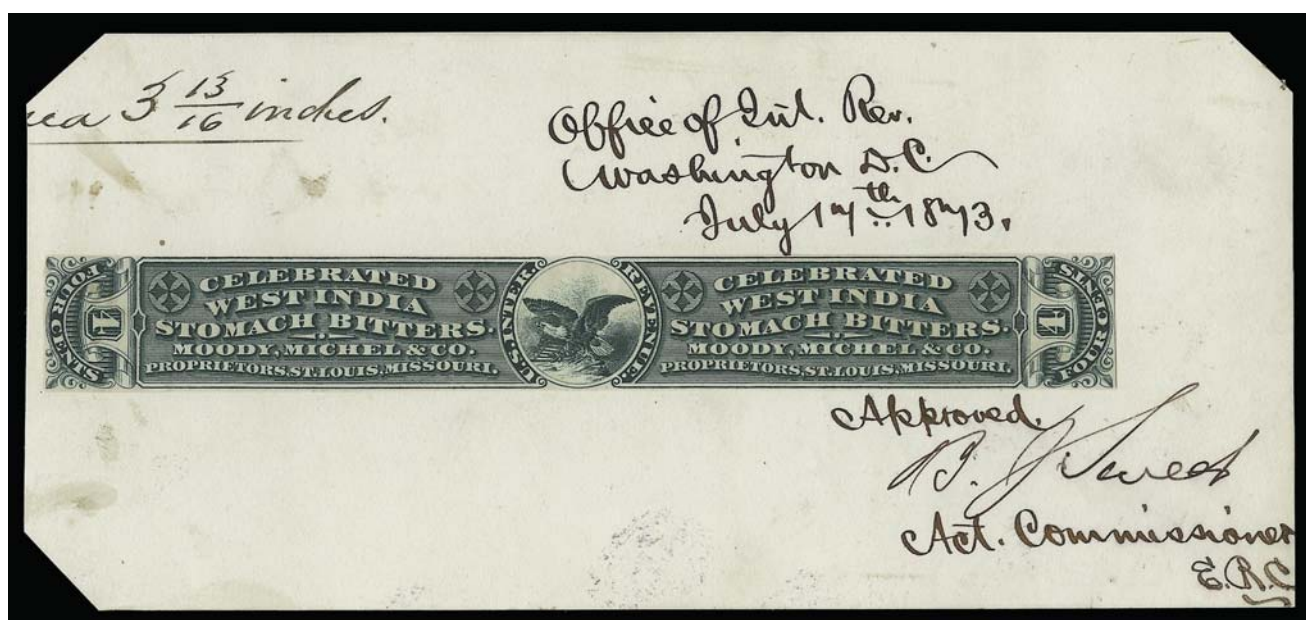 3 13/16 inches.
Office of Int. Rev.
Washington D.C.
July 17th 1873.
FOUR CENTS
4
CELEBRATED
WEST INDIA
STOMACH BITTERS.
MOODY, MICHEL & CO.
PROPRIETORS, ST. LOUIS, MISSOURI.
U.S. INTER. REVENUE.
CELEBRATED
WEST INDIA
STOMACH BITTERS.
MOODY, MICHEL & CO.
PROPRIETORS, ST. LOUIS, MISSOURI.
4
FOUR CENTS
Approved.
B. J. Sweet
Act. Commissioner
E.R.C.